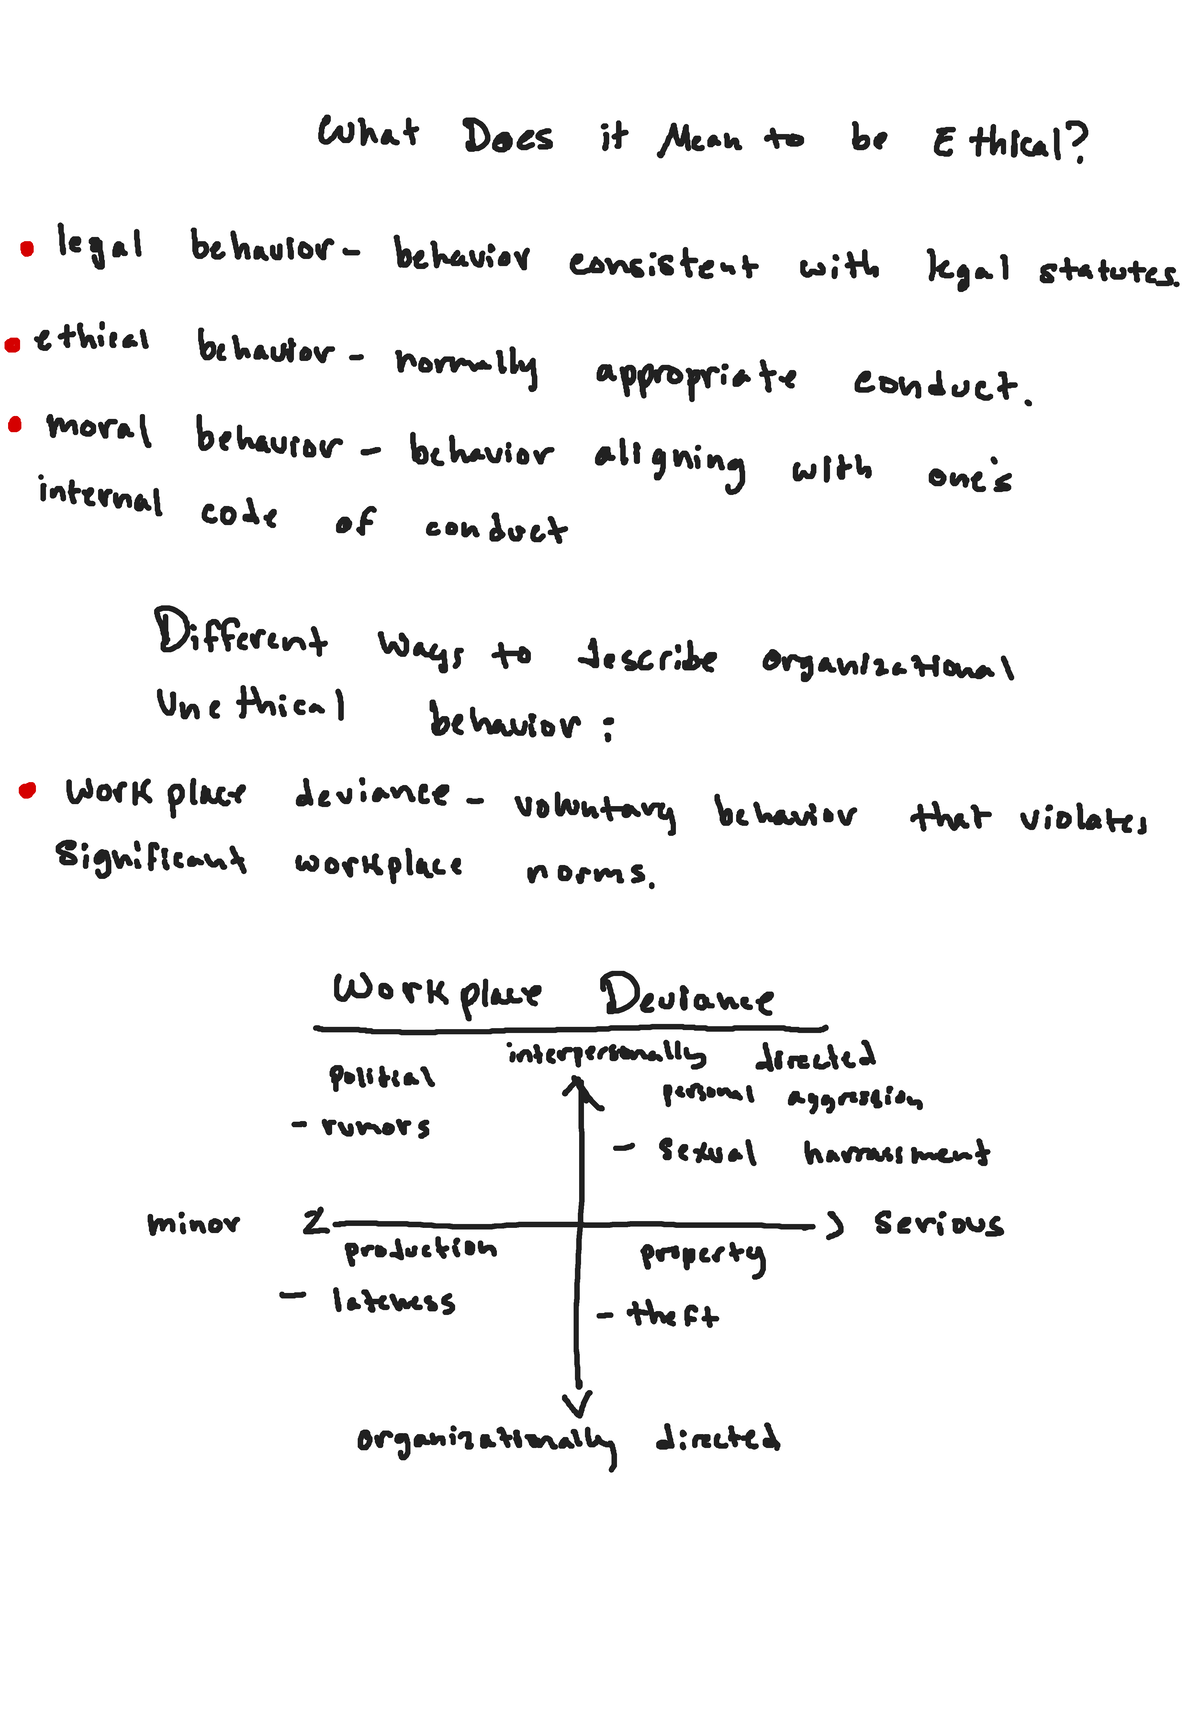 What Does it Mean to be Ethical?
• legal behavior - behavior consistent with legal statutes.
• ethical behavior - normally appropriate conduct.
• moral behavior - behavior aligning with one's
internal code of conduct
Different ways to describe organizational
Unethical behavior:
• Workplace deviance - voluntary behavior that violates
significant workplace norms.
Workplace Deviance
interpersonally directed
political
personal aggression
- rumors
- sexual harrassment
minor
serious
production
property
- lateness
- theft
organizationally directed